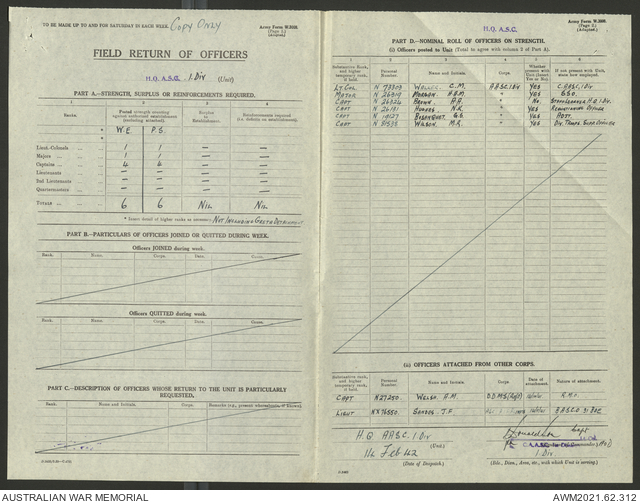 TO BE MADE UP TO AND FOR SATURDAY IN EACH WEEK.
COPY ONLY
Army Form W.3008.
(Page 1.)
(Adapted.)
FIELD RETURN OF OFFICERS
H.Q. A.S.C. 1 Div (Unit)
PART A.—STRENGTH, SURPLUS OR REINFORCEMENTS REQUIRED.
1 2 3 4
Ranks. Posted strength counting against authorised establishment (excluding attached). Surplus to Establishment. Reinforcements required (i.e. deficits on establishment).
W.E. P.S.
Lieut.-Colonels 1 1 — —
Majors 1 1 — —
Captains 4 4 — —
Lieutenants — — — —
2nd Lieutenants — — — —
Quartermasters — — — —
TOTALS 6 6 NIL NIL
* Insert detail of higher ranks as necessary. NOT INCLUDING GRETA DETACHMENT
PART B.—PARTICULARS OF OFFICERS JOINED OR QUITTED DURING WEEK.
Officers JOINED during week.
Rank. Name. Corps. Date. Cause.
Officers QUITTED during week.
Rank. Name. Corps. Date. Cause.
PART C.—DESCRIPTION OF OFFICERS WHOSE RETURN TO THE UNIT IS PARTICULARLY REQUESTED.
Rank. Name and Initials. Corps. Remarks (e.g., present whereabouts, if known).
H.Q. A.S.C.
Army Form W.3008.
(Page 2.)
(Adapted.)
PART D.—NOMINAL ROLL OF OFFICERS ON STRENGTH.
(i) Officers posted to Unit (Total to agree with column 2 of Part A).
1 2 3 4 5 6
Substantive Rank, and higher temporary rank, if held. Personal Number. Name and Initials. Corps. Whether present with Unit (Insert Yes or No). If not present with Unit, state how employed.
LT COL C.M. AASC 1 Div YES C.AASC 1 Div
MAJOR MORGAN YES S.S.O.
CAPT BROWN A.A. " NO. H.Q. 1 DIV
CAPT HUGHES N.K. " YES REQUISITIONING OFFICER
CAPT G.S. " YES ADJT
CAPT WILSON. M.K. " YES DIV. TROOPS SUPP. OFFICER
(ii) OFFICERS ATTACHED FROM OTHER CORPS.
Substantive rank, and higher temporary rank, if held. Personal Number. Name and Initials. Corps. Date of attachment. Nature of attachment.
CAPT N27250. WELSH A.M. R.M.O.
LIEUT J.F.
H.Q. AASC. 1 Div
(Unit.)
14 Feb 42
(Date of Despatch.)
Capt
1 Div
(Bde., Divn., Area, etc., with which Unit is serving.)
AUSTRALIAN WAR MEMORIAL
AWM2021.62.312